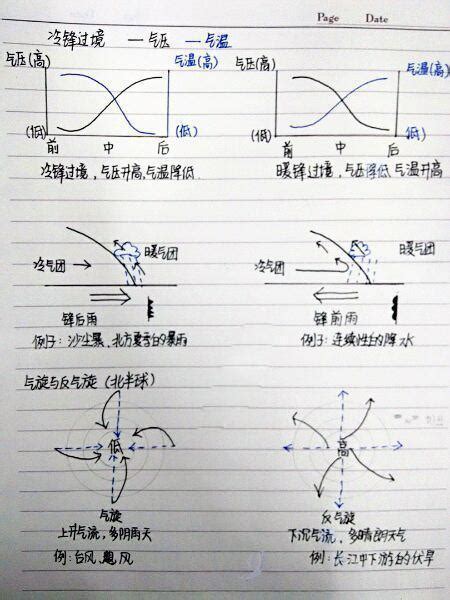 Page Date
冷锋过境 —气压 —气温
气压(高) 气温(高) 气压(高) 气温(高)
(低) (低) (低) (低)
前 中 后 前 中 后
冷锋过境，气压升高，气温降低. 暖锋过境，气压降低，气温升高
冷气团 暖气团 冷气团 暖气团
锋后雨 锋前雨
例子：沙尘暴、北方夏季的暴雨 例子：连续性的降水
气旋与反气旋（北半球）
低 高
气旋 反气旋
上升气流，多阴雨天 下沉气流，多晴朗天气
例：台风、飓风 例：长江中下游的伏旱